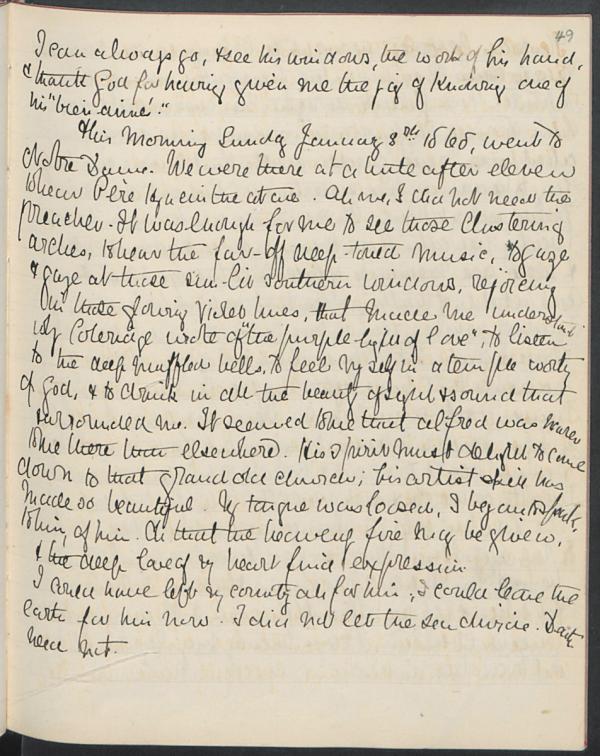 49
I can always go, & see his windows, the work of his hand,
& thank God for having given me the joy of knowing one of
his "bien-aimé."
This Morning Sunday January 8th 1865, went to
Notre Dame. We were there at a little after eleven
to hear Père Hyacinthe at one. Ah me, I did not need the
preacher. It was enough for me to see those clustering
arches, to hear the far-off deep-toned music, to gaze
& gaze at those sun-lit southern windows, rejoicing
in those glowing violet hues, that made me understand
why Coleridge wrote of "the purple light of love", to listen
to the deep muffled bells, to feel myself in a temple worthy
of God, & to drink in all the beauty of sight & sound that
surrounded me. It seemed to me that Alfred was nearer
to me there than elsewhere. His spirit must delight to come
down to that grand old church; his artist skill has
made so beautiful. My tongue was loosed, I began to speak,
to him, of him. Ah that the heavenly fire may be given,
& the deep love of my heart find expression
I would have left my country all for him, I could leave the
earth for him now. I did not let the sea divide. Death
need not.